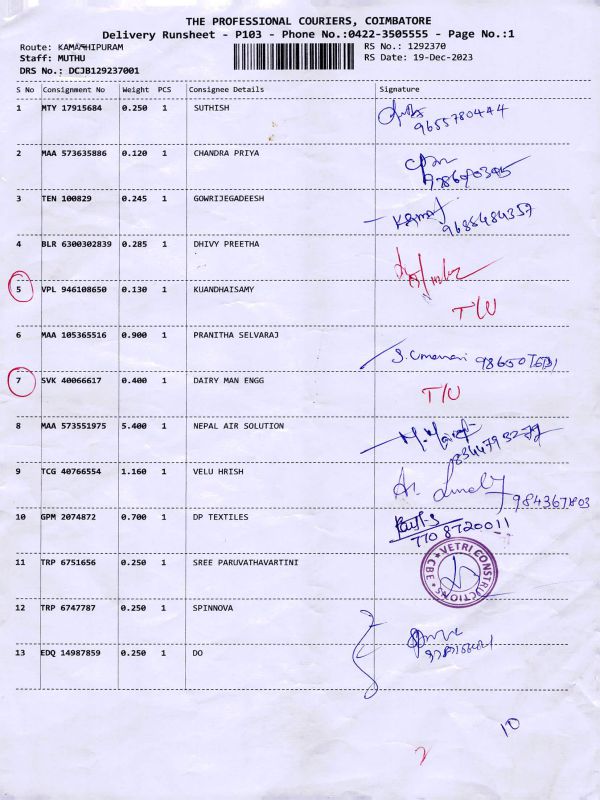 THE PROFESSIONAL COURIERS, COIMBATORE
Delivery Runsheet - P103 - Phone No.:0422-3505555 - Page No.:1
Route: KAMAKHIPURAM RS No.: 1292370
Staff: MUTHU RS Date: 19-Dec-2023
DRS No.: DCJB129237001
S No Consignment No Weight PCS Consignee Details Signature
1 MTY 17915684 0.250 1 SUTHISH
9655780444
2 MAA 573635886 0.120 1 CHANDRA PRIYA
3 TEN 100829 0.245 1 GOWRIJEGADEESH
9688484357
4 BLR 6300302839 0.285 1 DHIVY PREETHA
5 VPL 946108650 0.130 1 KUANDHAISAMY
T/U
6 MAA 105365516 0.900 1 PRANITHA SELVARAJ
7 SVK 40066617 0.400 1 DAIRY MAN ENGG T/U
8 MAA 573551975 5.400 1 NEPAL AIR SOLUTION
9 TCG 40766554 1.160 1 VELU HRISH
10 GPM 2074872 0.700 1 DP TEXTILES
7708720011
11 TRP 6751656 0.250 1 SREE PARUVATHAVARTINI VETRI CONSTRUCTIONS CBE
12 TRP 6747787 0.250 1 SPINNOVA
13 EDQ 14987859 0.250 1 DO
10
2